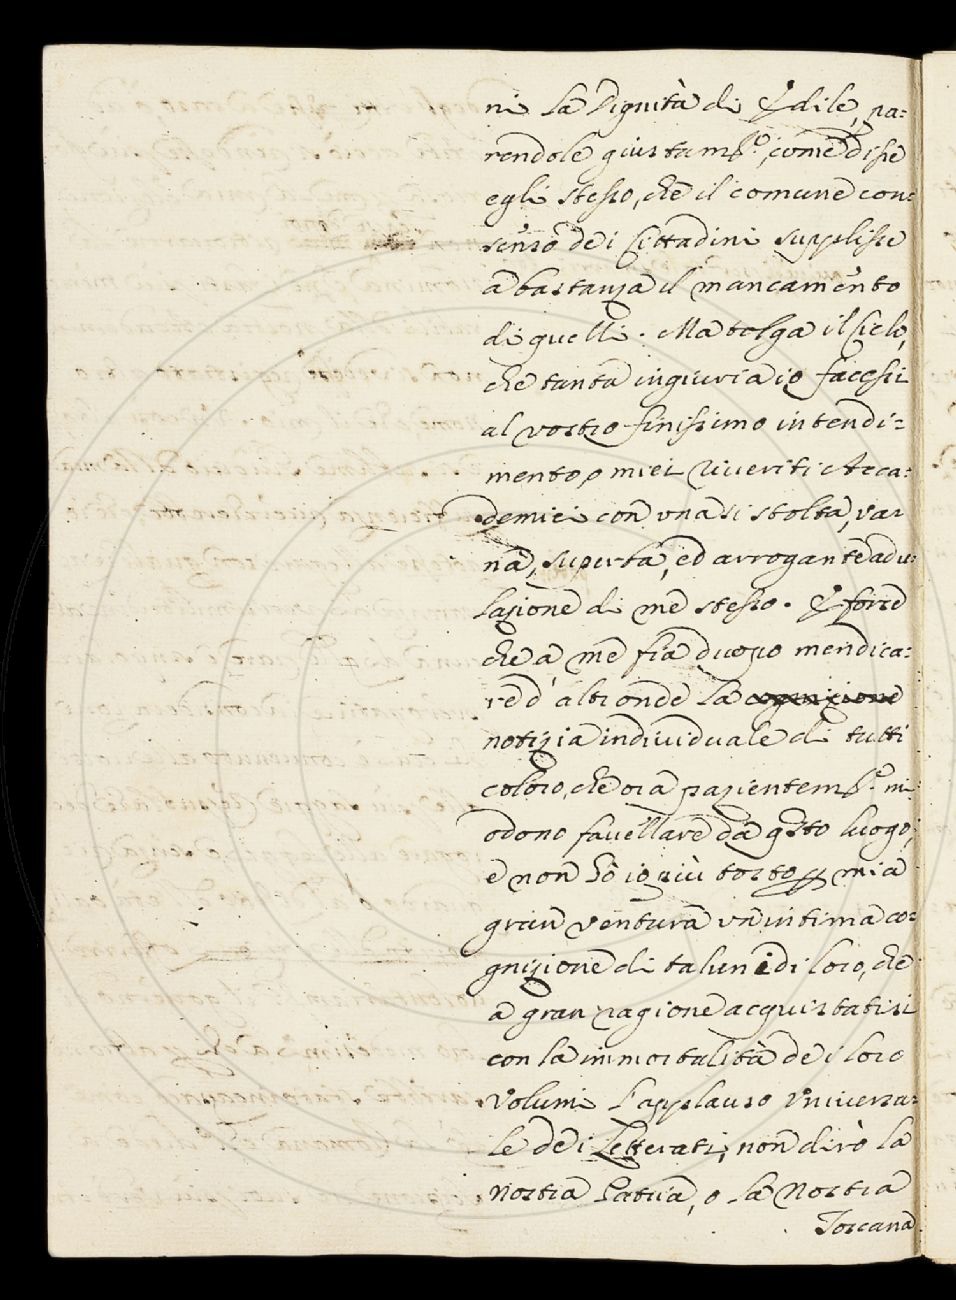 ni la Dignità di Edile, pa=
rendole giustam.te, come disse
egli stesso, che il comune con=
senso dei Cittadini supplisse
a bastanza il mancamento
di quelli. Ma tolga il Cielo,
che tanta ingiuria io facessi
al vostro finissimo intendi=
mento, o miei riveriti Acca=
demici con una si stolta, va=
na, superba, ed arrogante adu=
lazione di me stesso. E forse
che a me fia d'uopo mendica=
re d'altronde la cognizione
notizia individuale di tutti
coloro, che ora pazientem.te m'
odono favellare da q.sto luogo,
e non hò io più tosto p mia
gran ventura un intima co=
gnizione di taluni di loro, che
a gran ragione acquistatisi
con la immortalità dei loro
Volumi l'applauso universa=
le dei Letterati, non dirò la
nostra Patria, o la nostra
Toscana